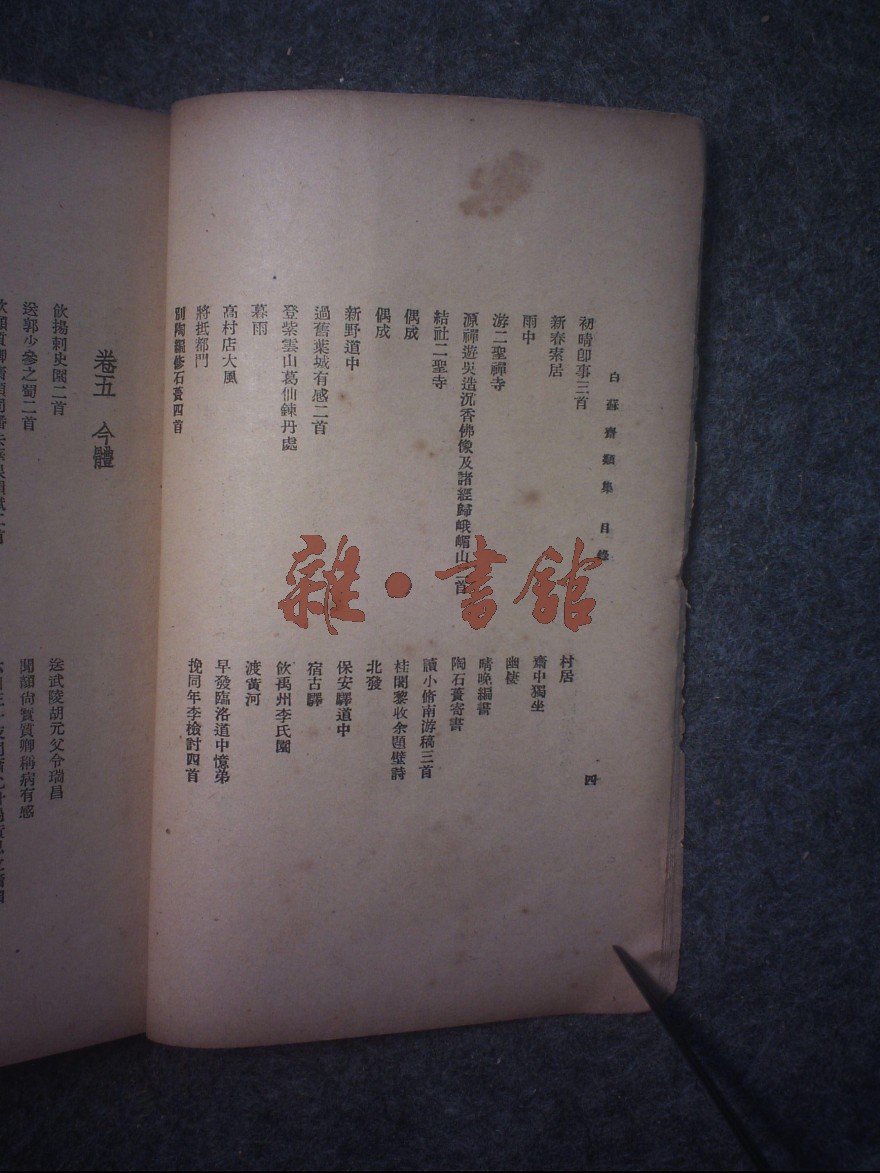 白蘇齋類集 目錄
四
初晴卽事三首
新春索居
雨中
游二聖禪寺
源禪遊吳造沉香佛像及諸經歸峨嵋山二首
結社二聖寺
偶成
偶成
新野道中
過舊葉城有感二首
登紫雲山葛仙鍊丹處
暮雨
高村店大風
將抵都門
別陶編修石簣四首
村居
齋中獨坐
幽棲
晴晚編書
陶石簣寄書
讀小修南游稿三首
桂閣黎收余題壁詩
北發
保安驛道中
宿古驛
飮禹州李氏園
渡黃河
早發臨洛道中憶弟
挽同年李檢討四首
卷五 今體
飮揚刺史園二首
送郭少參之蜀二首
送武陵胡元父令瑞昌
聞顏尙寶質卿稱病有感
雜·書館